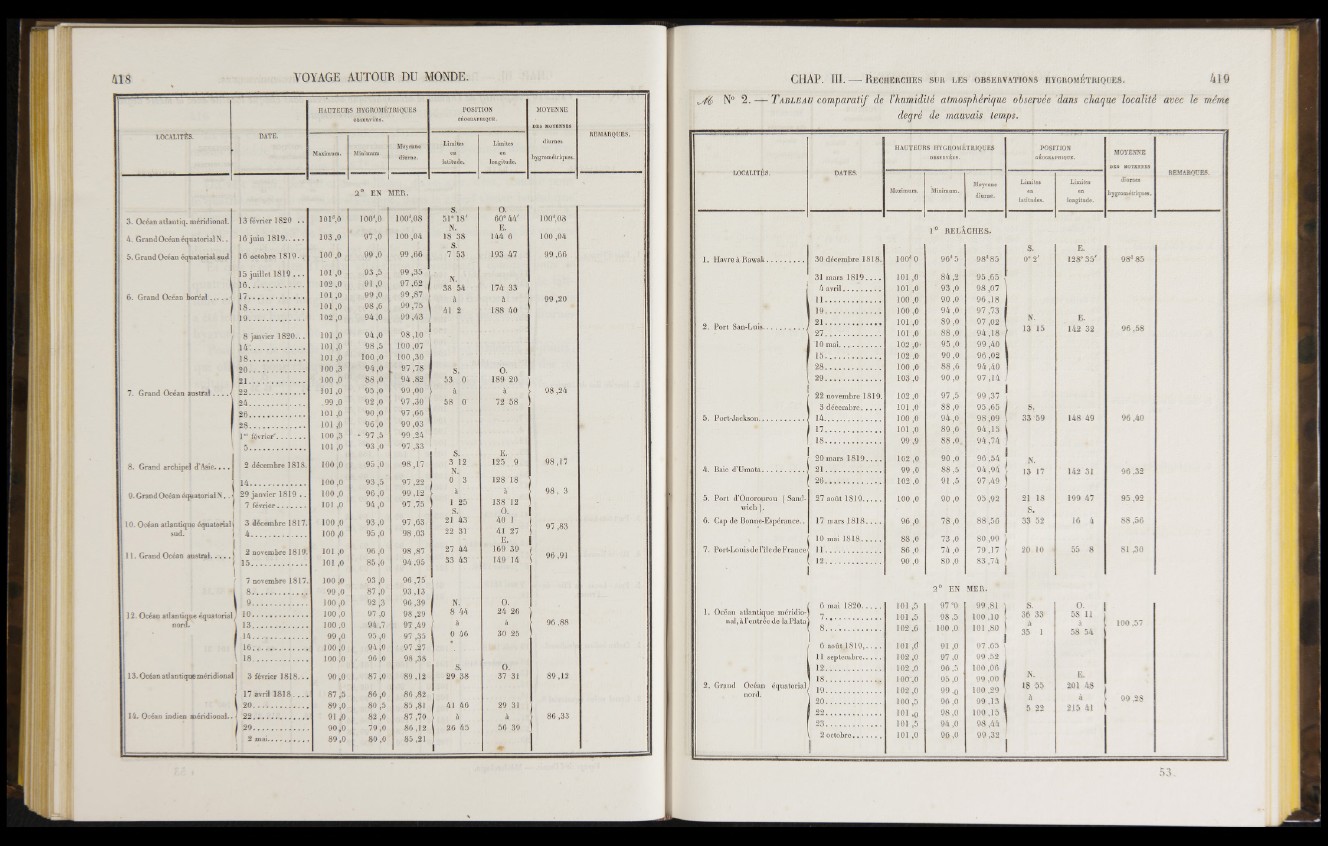 418 VOYAGE AUTOUR DU MONDE.
LOCALITÉS. DATE. HAUTEURS HYGROMÉTRIQUES OBSERVÉES. POSITION GÉOGRAPHIQUE. MOYENNE DES MOYENNES diurnes hygrométriques. REMARQUES.
Maximum. Minimum. Moyenne diurne. Limites en latitude. Limites en longitude.
2° EN MER.
S. O.
3. Océan atlantiq. méridional. 13 février 1820 .. 101°,0 100°,0 100°,08 51° 18′ 60° 44′ 100°,08
N. E.
4. Grand Océan équatorial N.. 16 juin 1819..... 103 ,0 97 ,0 100 ,04 18 38 144 6 100 ,04
S.
5. Grand Océan équatorial sud 16 octobre 1819.. 100 ,0 99 ,0 99 ,66 7 53 193 47 99 ,66
15 juillet 1819 ... 101 ,0 93 ,5 99 ,35
N.
16............. 102 ,0 91 ,0 97 ,62 38 54 174 33
6. Grand Océan boréal ..... 17............. 101 ,0 99 ,0 99 ,87 à à 99 ,20
18............. 101 ,0 98 ,6 99 ,75 41 2 188 40
19............. 102 ,0 94 ,0 99 ,43
8 janvier 1820... 101 ,0 94 ,0 98 ,10
14............. 101 ,0 98 ,5 100 ,07
18............. 101 ,0 100 ,0 100 ,30
20............. 100 ,3 94 ,0 97 ,78 S. O.
21............. 100 ,0 88 ,0 94 ,82 53 0 189 20
7. Grand Océan austral .... 22............. 101 ,0 95 ,0 99 ,00 à à 98 ,24
24............. 99 ,0 92 ,0 97 ,30 58 0 72 58
26............. 101 ,0 90 ,0 97 ,66
28............. 101 ,0 96 ,0 99 ,03
1er février....... 100 ,3 97 ,5 99 ,24
5............. 101 ,0 93 ,0 97 ,33
S. E.
8. Grand archipel d'Asie.... 2 décembre 1818. 100 ,0 95 ,0 98 ,17 3 12 125 9 98 ,17
N.
14............. 100 ,0 93 ,5 97 ,22 0 3 128 18
9. Grand Océan équatorial N.. 29 janvier 1819 .. 100 ,0 96 ,0 99 ,12 à à 98 , 3
7 février........ 101 ,0 94 ,0 97 ,75 1 25 138 12
S. O.
10. Océan atlantique équatorial sud. 3 décembre 1817. 100 ,0 93 ,0 97 ,63 21 43 40 1 97 ,83
4............. 100 ,0 95 ,0 98 ,03 22 31 41 27
E.
11. Grand Océan austral..... 2 novembre 1819. 101 ,0 96 ,0 98 ,87 27 44 160 39 96 ,91
15............. 101 ,0 85 ,0 94 ,95 33 43 149 14
7 novembre 1817. 100 ,0 93 ,0 96 ,75
8............. 99 ,0 87 ,0 93 ,13
9............. 100 ,0 92 ,3 96 ,39 N. O.
12. Océan atlantique équatorial nord. 10............. 100 ,0 97 ,0 98 ,29 8 44 24 26
13............. 100 ,0 94 ,7 97 ,49 à à 96 ,88
14............. 99 ,0 95 ,0 97 ,35 0 46 30 25
16............. 100 ,0 94 ,0 97 ,27
18............. 100 ,0 96 ,0 98 ,38
S. O.
13. Océan atlantique méridional 3 février 1818... 90 ,0 87 ,0 89 ,12 29 38 37 31 89 ,12
17 avril 1818.... 87 ,5 86 ,0 86 ,82
20............. 89 ,0 80 ,5 85 ,81 41 46 29 31
14. Océan indien méridional.. 22............. 91 ,0 82 ,0 87 ,70 à à 86 ,33
29............. 90 ,0 79 ,0 86 ,12 26 45 56 39
2 mai.......... 89 ,0 80 ,0 85 ,21
CHAP. III. — RECHERCHES SUR LES OBSERVATIONS HYGROMÉTRIQUES. 419
N° 2. — TABLEAU comparatif de l'humidité atmosphérique observée dans chaque localité avec le même
degré de mauvais temps.
LOCALITÉS. DATES. HAUTEURS HYGROMÉTRIQUES OBSERVÉES. POSITION GÉOGRAPHIQUE. MOYENNE DES MOYENNES diurnes hygrométriques. REMARQUES.
Maximum. Minimum. Moyenne diurne. Limites en latitudes. Limites en longitude.
1° RELÂCHES.
S. E.
1. Havre à Rawak......... 30 décembre 1818. 100° 0 96° 5 98° 85 0° 2′ 128° 35′ 98° 85
31 mars 1819.... 101 ,0 84 ,2 95 ,65
4 avril......... 101 ,0 93 ,0 98 ,07
11............. 100 ,0 90 ,0 96 ,18
19............. 100 ,0 94 ,0 97 ,73
21............. 101 ,0 89 ,0 97 ,02 N. E.
2. Port San-Luis.......... 27............. 101 ,0 88 ,0 94 ,18 13 15 142 32 96 ,58
10 mai.......... 102 ,0 95 ,0 99 ,40
15............. 102 ,0 90 ,0 96 ,02
28............. 100 ,0 88 ,6 94 ,40
29............. 103 ,0 90 ,0 97 ,14
22 novembre 1819. 102 ,0 97 ,5 99 ,37
3 décembre..... 101 ,0 88 ,0 95 ,65 S.
5. Port-Jeckson........... 14............. 100 ,0 94 ,0 98 ,09 33 59 148 49 96 ,40
17............. 101 ,0 89 ,0 94 ,15
18............. 99 ,0 88 ,0 94 ,74
20 mars 1819.... 102 ,0 90 ,0 96 ,54 N.
4. Baie d'Umata.......... 21............. 99 ,0 88 ,5 94 ,94 13 17 142 31 96 ,32
26............. 102 ,0 91 ,5 97 ,49
5. Port d'Onorourou (Sandwich). 27 août 1819..... 100 ,0 90 ,0 95 ,92 21 18 199 47 95 ,92
S.
6. Cap de Bonne-Espérance.. 17 mars 1818.... 96 ,0 78 ,0 88 ,56 33 52 16 4 88 ,56
10 mai 1818..... 88 ,0 73 ,0 80 ,99
7. Port-Louis de l'Ile de France 11............. 86 ,0 74 ,0 79 ,17 20 10 55 8 81 ,30
12............. 90 ,0 80 ,0 83 ,74
2° EN MER.
1. Océan atlantique méridional, à l'entrée de la Plata 6 mai 1820..... 101 ,5 97 °0 99 ,81 S. O.
7............. 101 ,5 98 ,5 100 ,10 36 33 58 11
8............. 102 ,6 100 ,0 101 ,80 à à 100 ,57
35 1 58 54
6 août 1819..... 101 ,0 91 ,0 97 ,65
11 septembre..... 102 ,0 97 ,0 99 ,52
12............. 102 ,0 96 ,5 100 ,06
18............. 100 ,0 95 ,0 99 ,00 N. E.
2. Grand Océan équatorial nord. 19............. 102 ,0 99 ,0 100 ,29 18 55 201 48
20............. 100 ,5 96 ,0 99 ,13 à à 99 ,28
22............. 101 ,0 98 ,0 100 ,15 5 22 215 41
23............. 101 ,5 94 ,0 98 ,44
2 octobre....... 101 ,0 96 ,0 99 ,32
53.